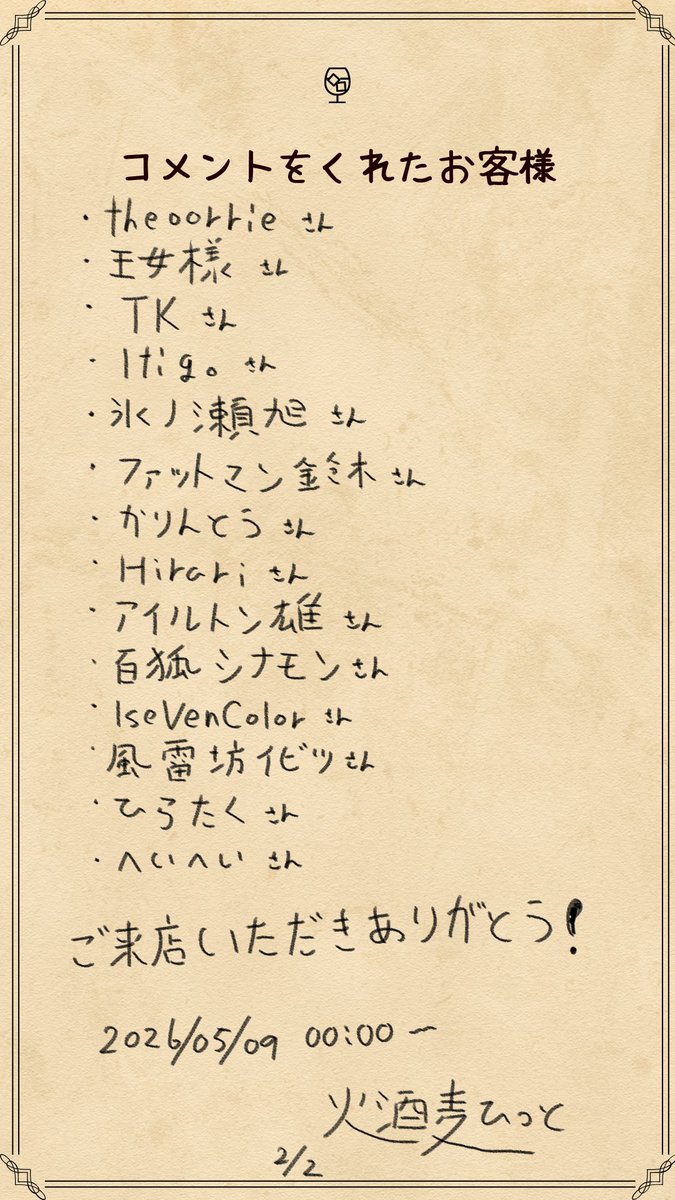 コメントをくれたお客様
・theoorrie さん
・王女様 さん
・TK さん
・Itigo さん
・氷ノ瀬旭 さん
・ファットマン鈴木 さん
・かりんとう さん
・Hirari さん
・アイルトン雄 さん
・百狐シナモン さん
・1seVenColor さん
・風雷坊イビツ さん
・ひらたく さん
・へいへい さん
ご来店いただきありがとう!
2026/05/09 00:00〜
火酒麦ひっと
2/2